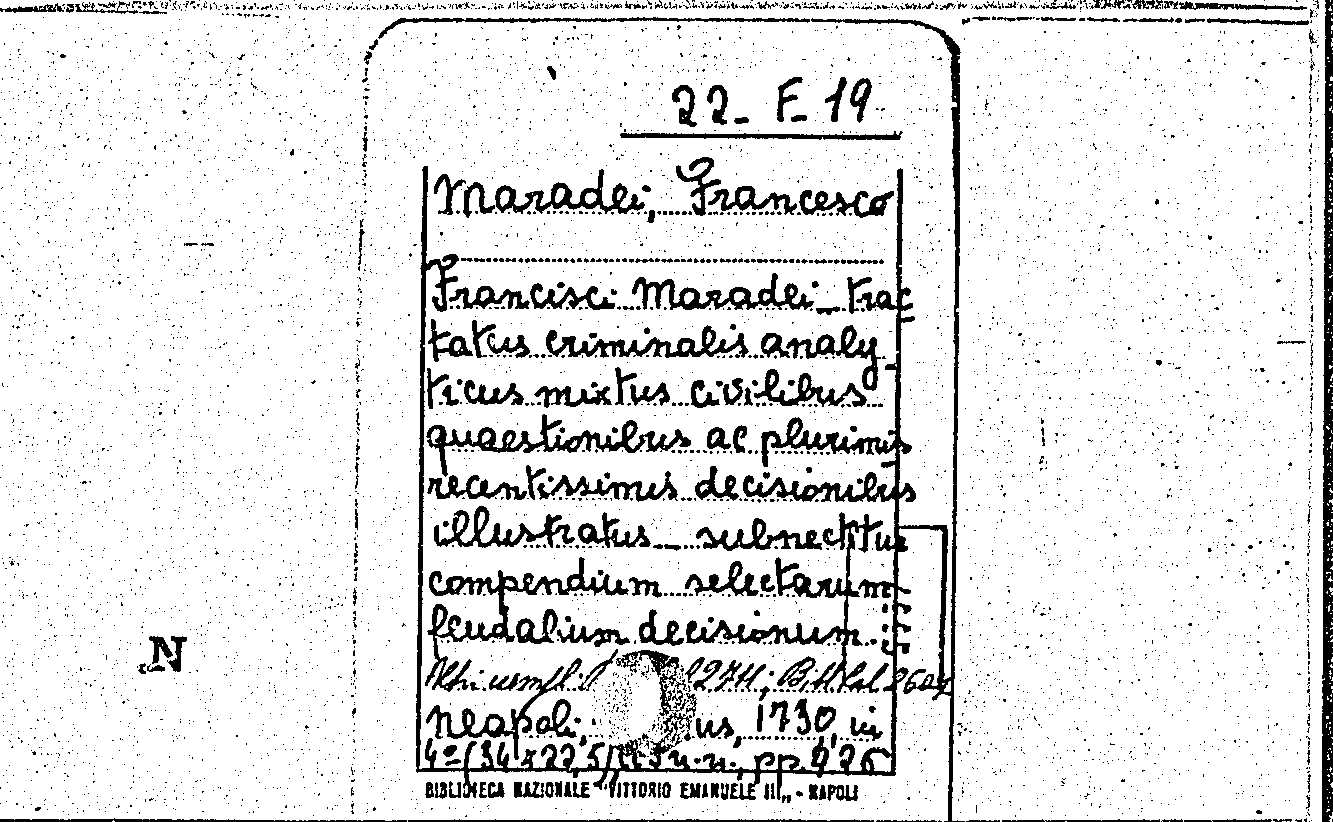 22- F- 19
Maradei, Francesco
Francisci Maradei _ trac
tatus criminalis analy_
ticus mixtus civilibus
quaestionibus ac plurimis
recentissimis decisionibus
illustratus _ subnectitur
compendium selectarum
feudalium decisionum
Neapoli, us, 1730, in
4º (34 x 22,5) n. n., pp.
BIBLIOTECA NAZIONALE "VITTORIO EMANUELE III„ - NAPOLI
N